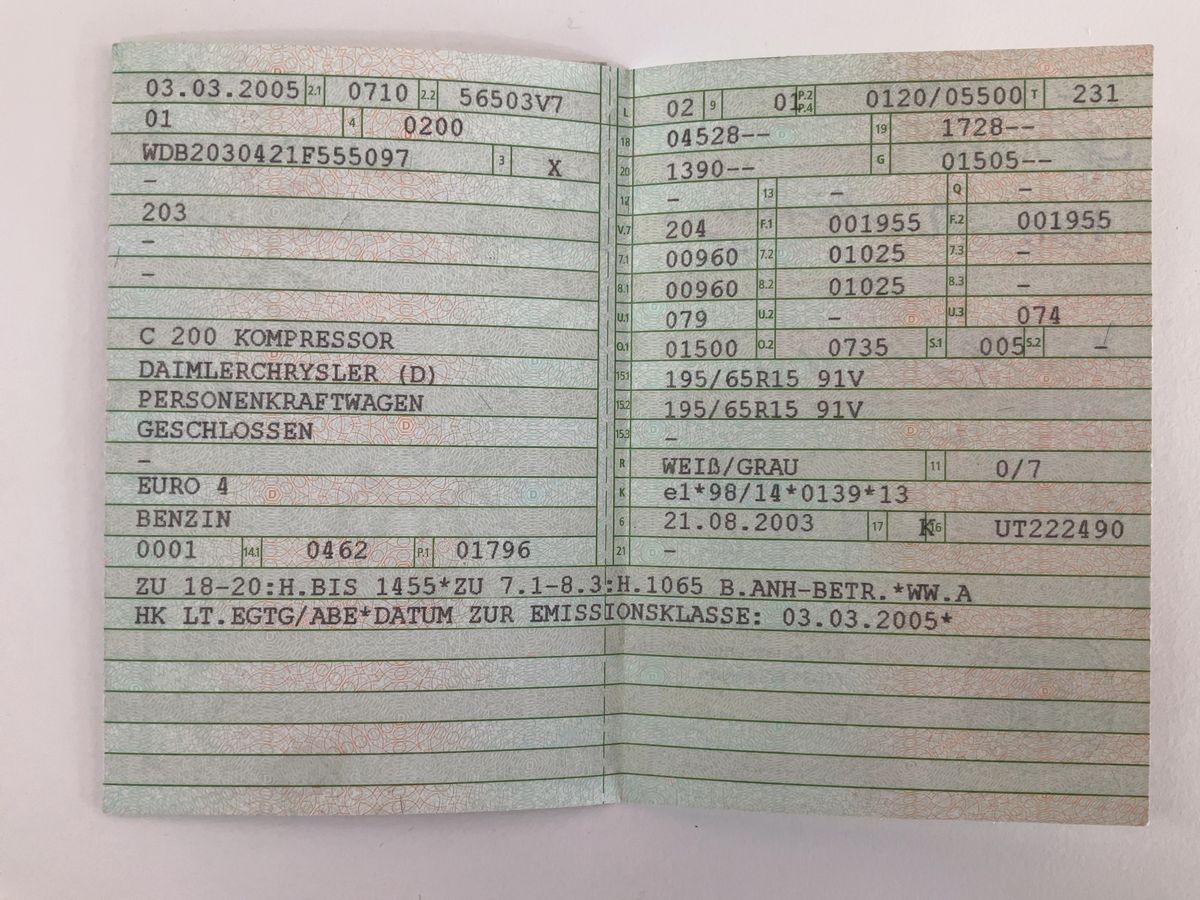 03.03.2005 2.1 0710 2.2 56503V7
01 4 0200
WDB2030421F555097 3 X
–
203
–
–
C 200 KOMPRESSOR
DAIMLERCHRYSLER (D)
PERSONENKRAFTWAGEN
GESCHLOSSEN
–
EURO 4
BENZIN
0001 14.1 0462 P.1 01796
L 02 9 01 P.2 P.4 0120/05500 T 231
18 04528-- 19 1728--
20 1390-- G 01505--
12 – 13 – Q –
V.7 204 F.1 001955 F.2 001955
7.1 00960 7.2 01025 7.3 –
8.1 00960 8.2 01025 8.3 –
U.1 079 U.2 – U.3 074
O.1 01500 O.2 0735 S.1 005 S.2 –
15.1 195/65R15 91V
15.2 195/65R15 91V
15.3 –
R WEIß/GRAU 11 0/7
K e1*98/14*0139*13
6 21.08.2003 17 K 16 UT222490
21 –
ZU 18-20:H.BIS 1455*ZU 7.1-8.3:H.1065 B.ANH-BETR.*WW.A
HK LT.EGTG/ABE*DATUM ZUR EMISSIONSKLASSE: 03.03.2005*